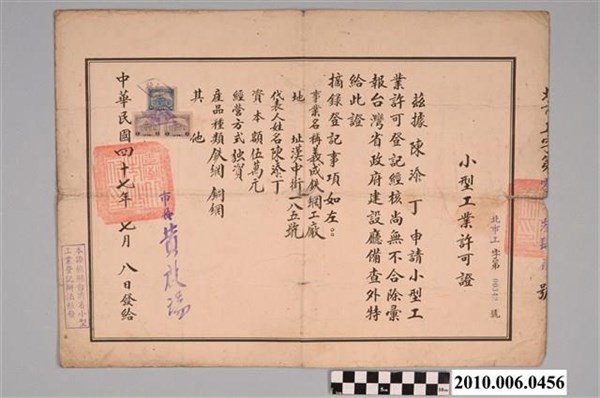 小型工業許可證
北市工字第 號
茲據陳添丁申請小型工
業許可登記經核尚無不合除彙
報台灣省政府建設廳備查外特
給此證
摘錄登記事項如左。
事業名稱義成鉄網工廠
地址漢中街一八五號
代表人姓名陳添丁
資本額伍萬元
經營方式獨資
產品種類鉄網 銅網
其他
市長黃啟瑞
中華民國四十七年七月八日發給
2010.006.0456